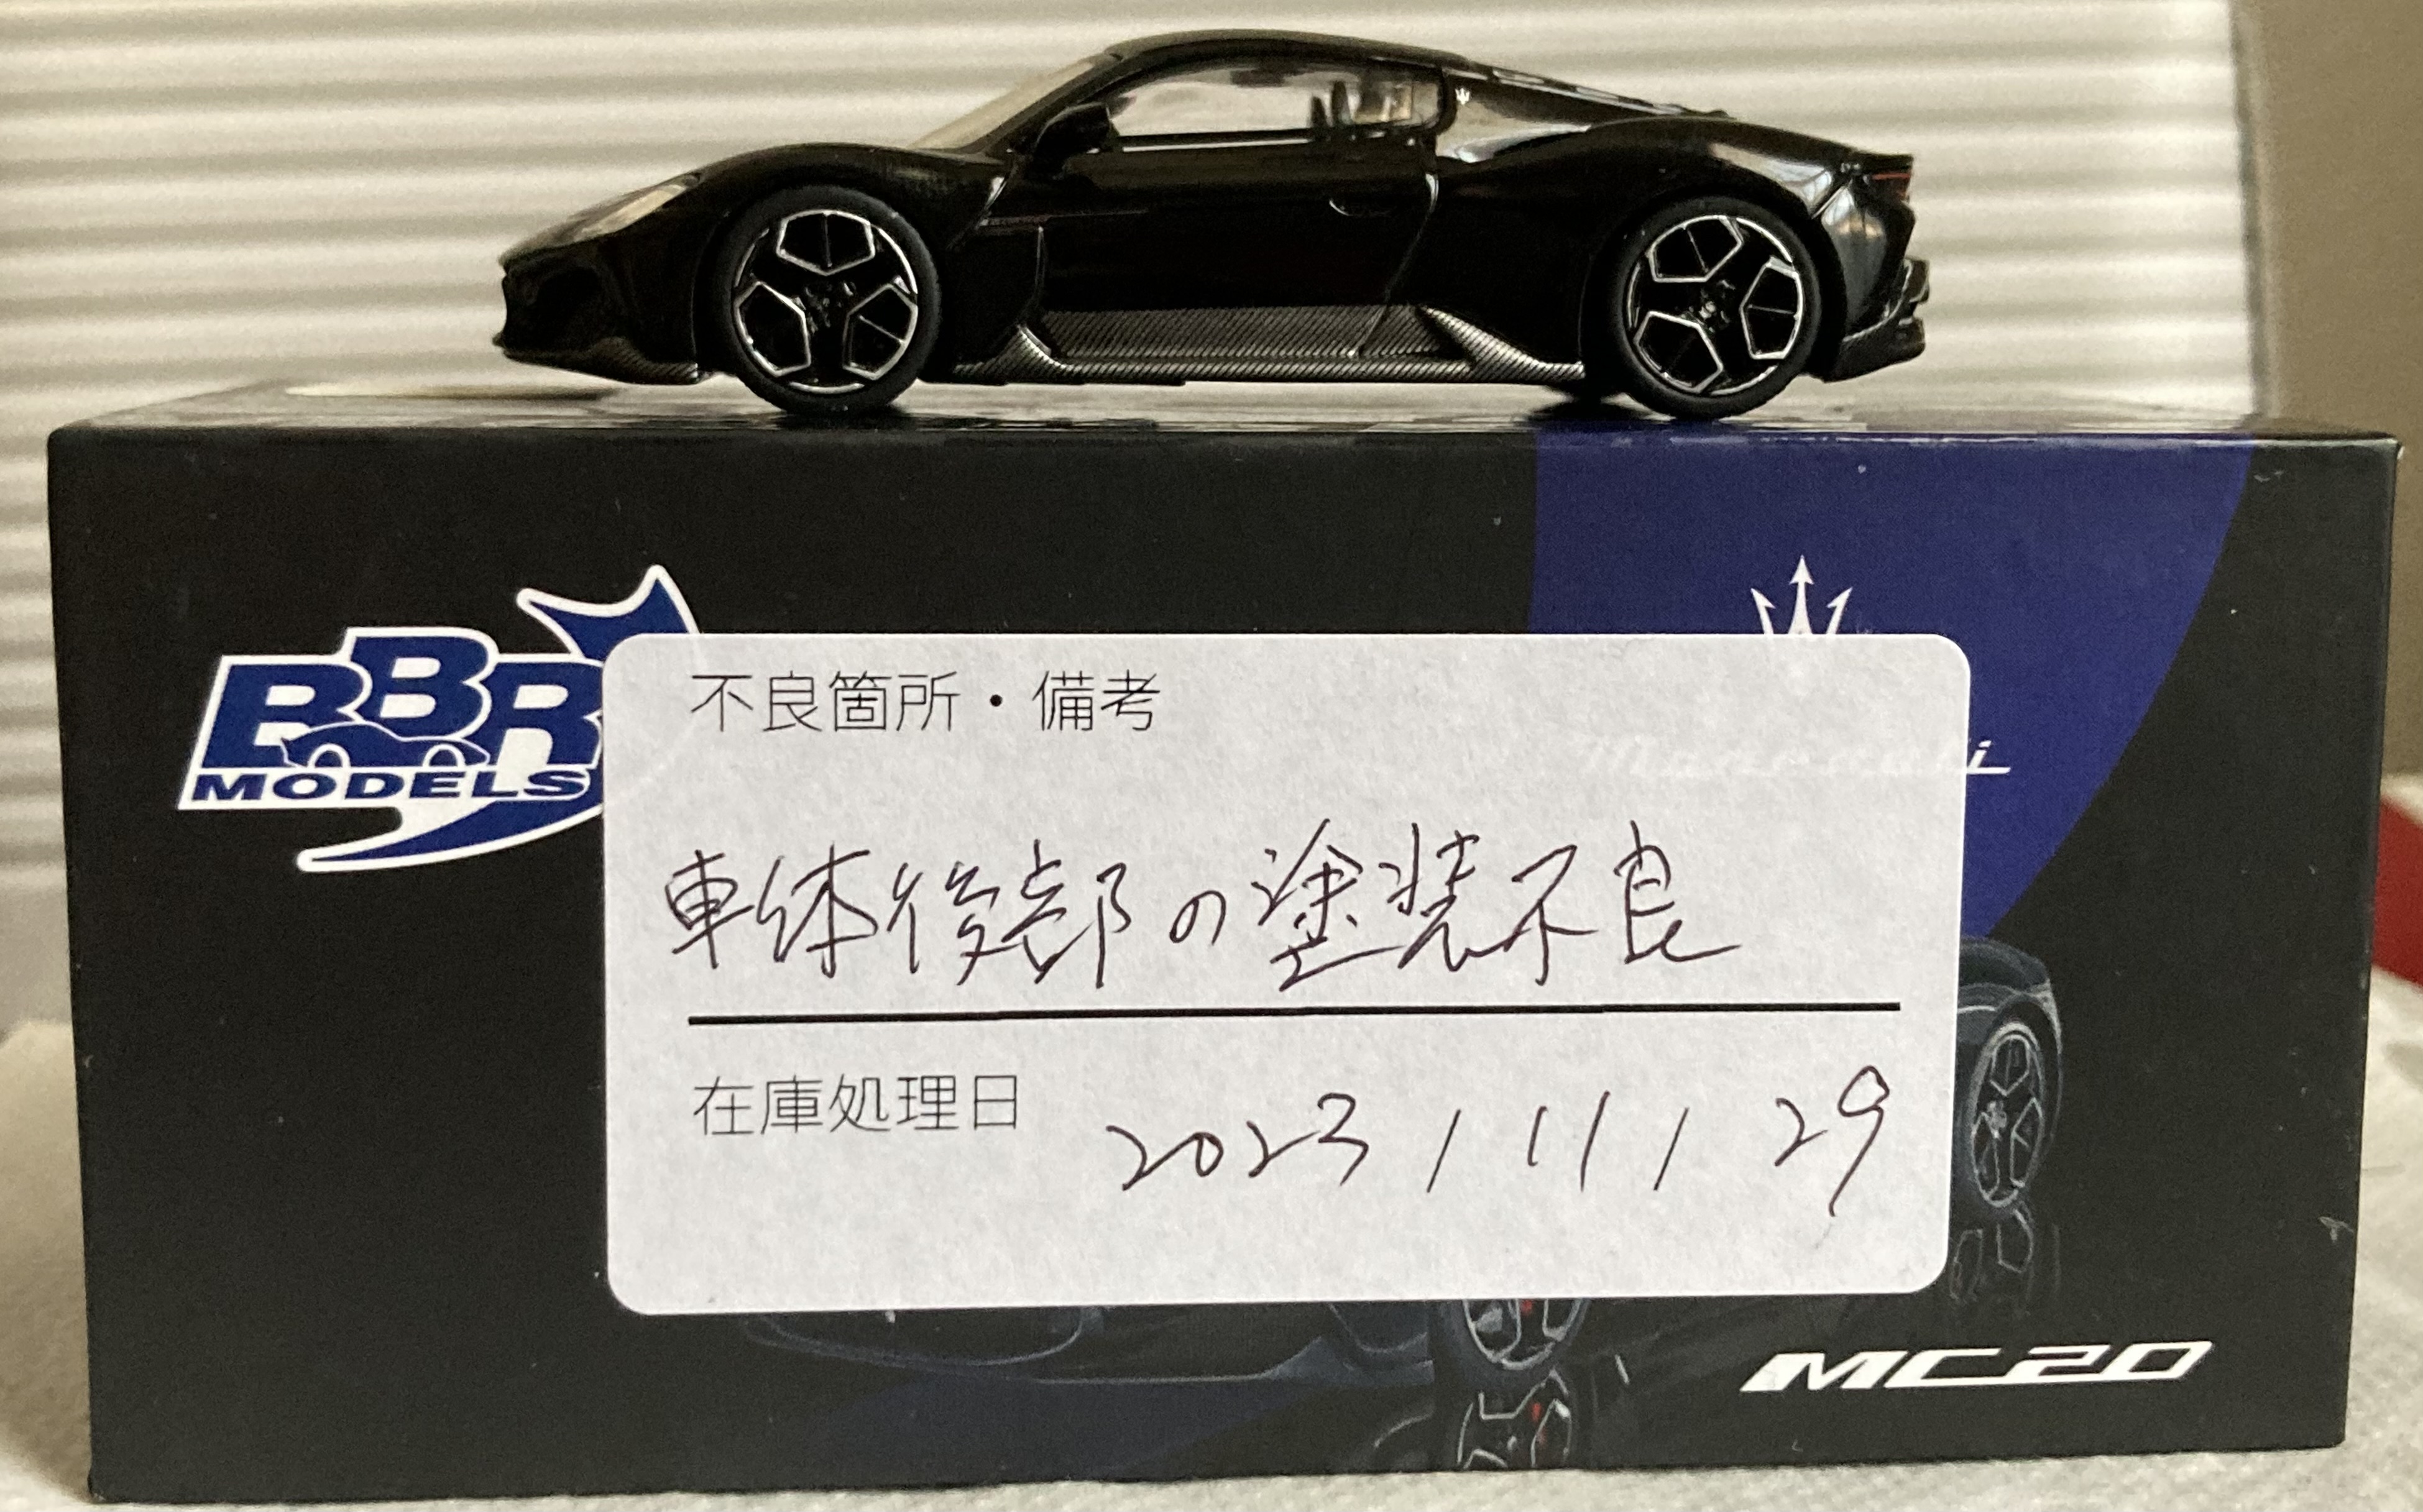 BBR
MODELS
不良箇所・備考
車体後部の塗装不良
在庫処理日
2023/11/29
MC20